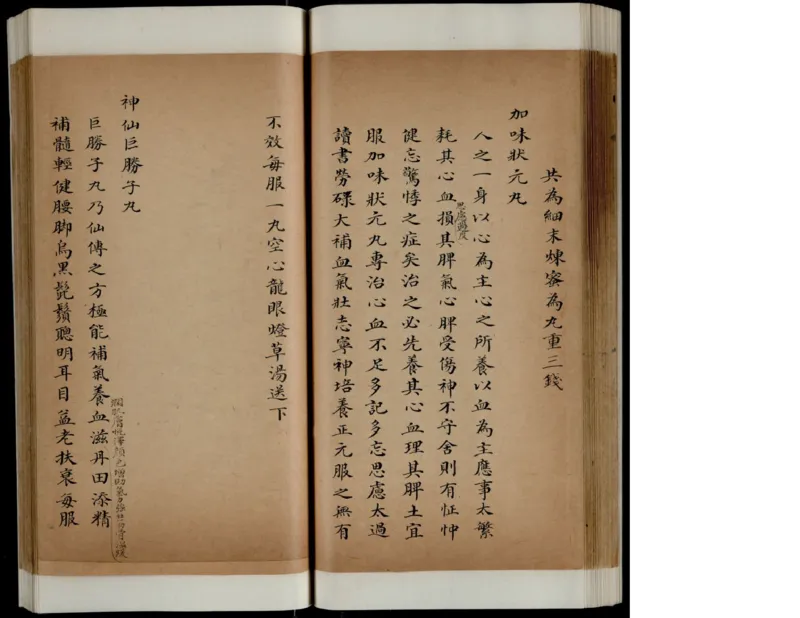 共為細末煉蜜為丸重三錢
加味狀元丸
人之一身以心為主心之所養以血為主應事太繁
耗其心血損其脾氣心脾受傷神不守舍則有怔忡
思慮過度
健忘驚悸之症矣治之必先養其心血理其脾土宜
服加味狀元丸專治心血不足多記多忘思慮太過
讀書勞碌大補血氣壯志寧神培養正元服之無有
不效每服一丸空心龍眼燈草湯送下
神仙巨勝子丸
巨勝子丸乃仙傳之方極能補氣養血滋丹田添精
補髓輕健腰脚烏黑髭鬚聰明耳目益老扶衰每服
潤肌膚悅澤顏色增助氣力強